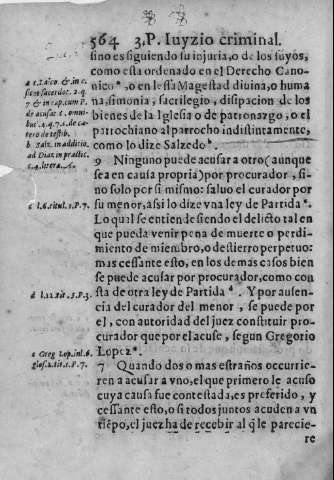 564 3.P. Iuyzio criminal.
sino es siguiendo su injuria, o de los suyos,
como esta ordenado en el Derecho Cano-
nico ª, o en lessa Magestad diuina, o huma
na, simonia, sacrilegio, disipacion de los
bienes de la Iglesia o de patronazgo, o el
parrochiano al parrocho indistintamente,
como lo dize Salzedo ᵇ.
9 Ninguno puede acusar a otro (aunque
sea en causa propria) por procurador, si-
no solo por si mismo: saluo el curador por
su menor, assi lo dize vna ley de Partida ᶜ.
Lo qual se entiende siendo el delicto tal en
que pueda venir pena de muerte o perdi-
miento de miembro, o destierro perpetuo:
mas cessante esto, en los demas casos bien
se puede acusar por procurador, como con
sta de otra ley de Partida ᵈ. Y por ausen-
cia del curador del menor, se puede por
el, con autoridad del juez constituir pro-
curador que por el acuse, segun Gregorio
Lopez ᵉ.
7 Quando dos o mas estraños occurrie-
ren a acusar a vno, el que primero le acuso
cuya causa fue contestada, es preferido, y
cessante esto, o si todos juntos acuden a vn
tiẽpo, el juez ha de recebir al q̃ le parecie-
re
sicut sacerdot. 2. q.
7 & in cap. cum P.
de acusat. & omni-
bus. 4. q. 7. c. de ca-
tero de testib.
b Salz. in additio.
ad Diaz in practic.
c l. 6. titul. 1. P. 7.
d l. 12. tit. 5. P. 3.
e Greg Lop. in l. 6.
glos. 2. tit. 1. P. 7.